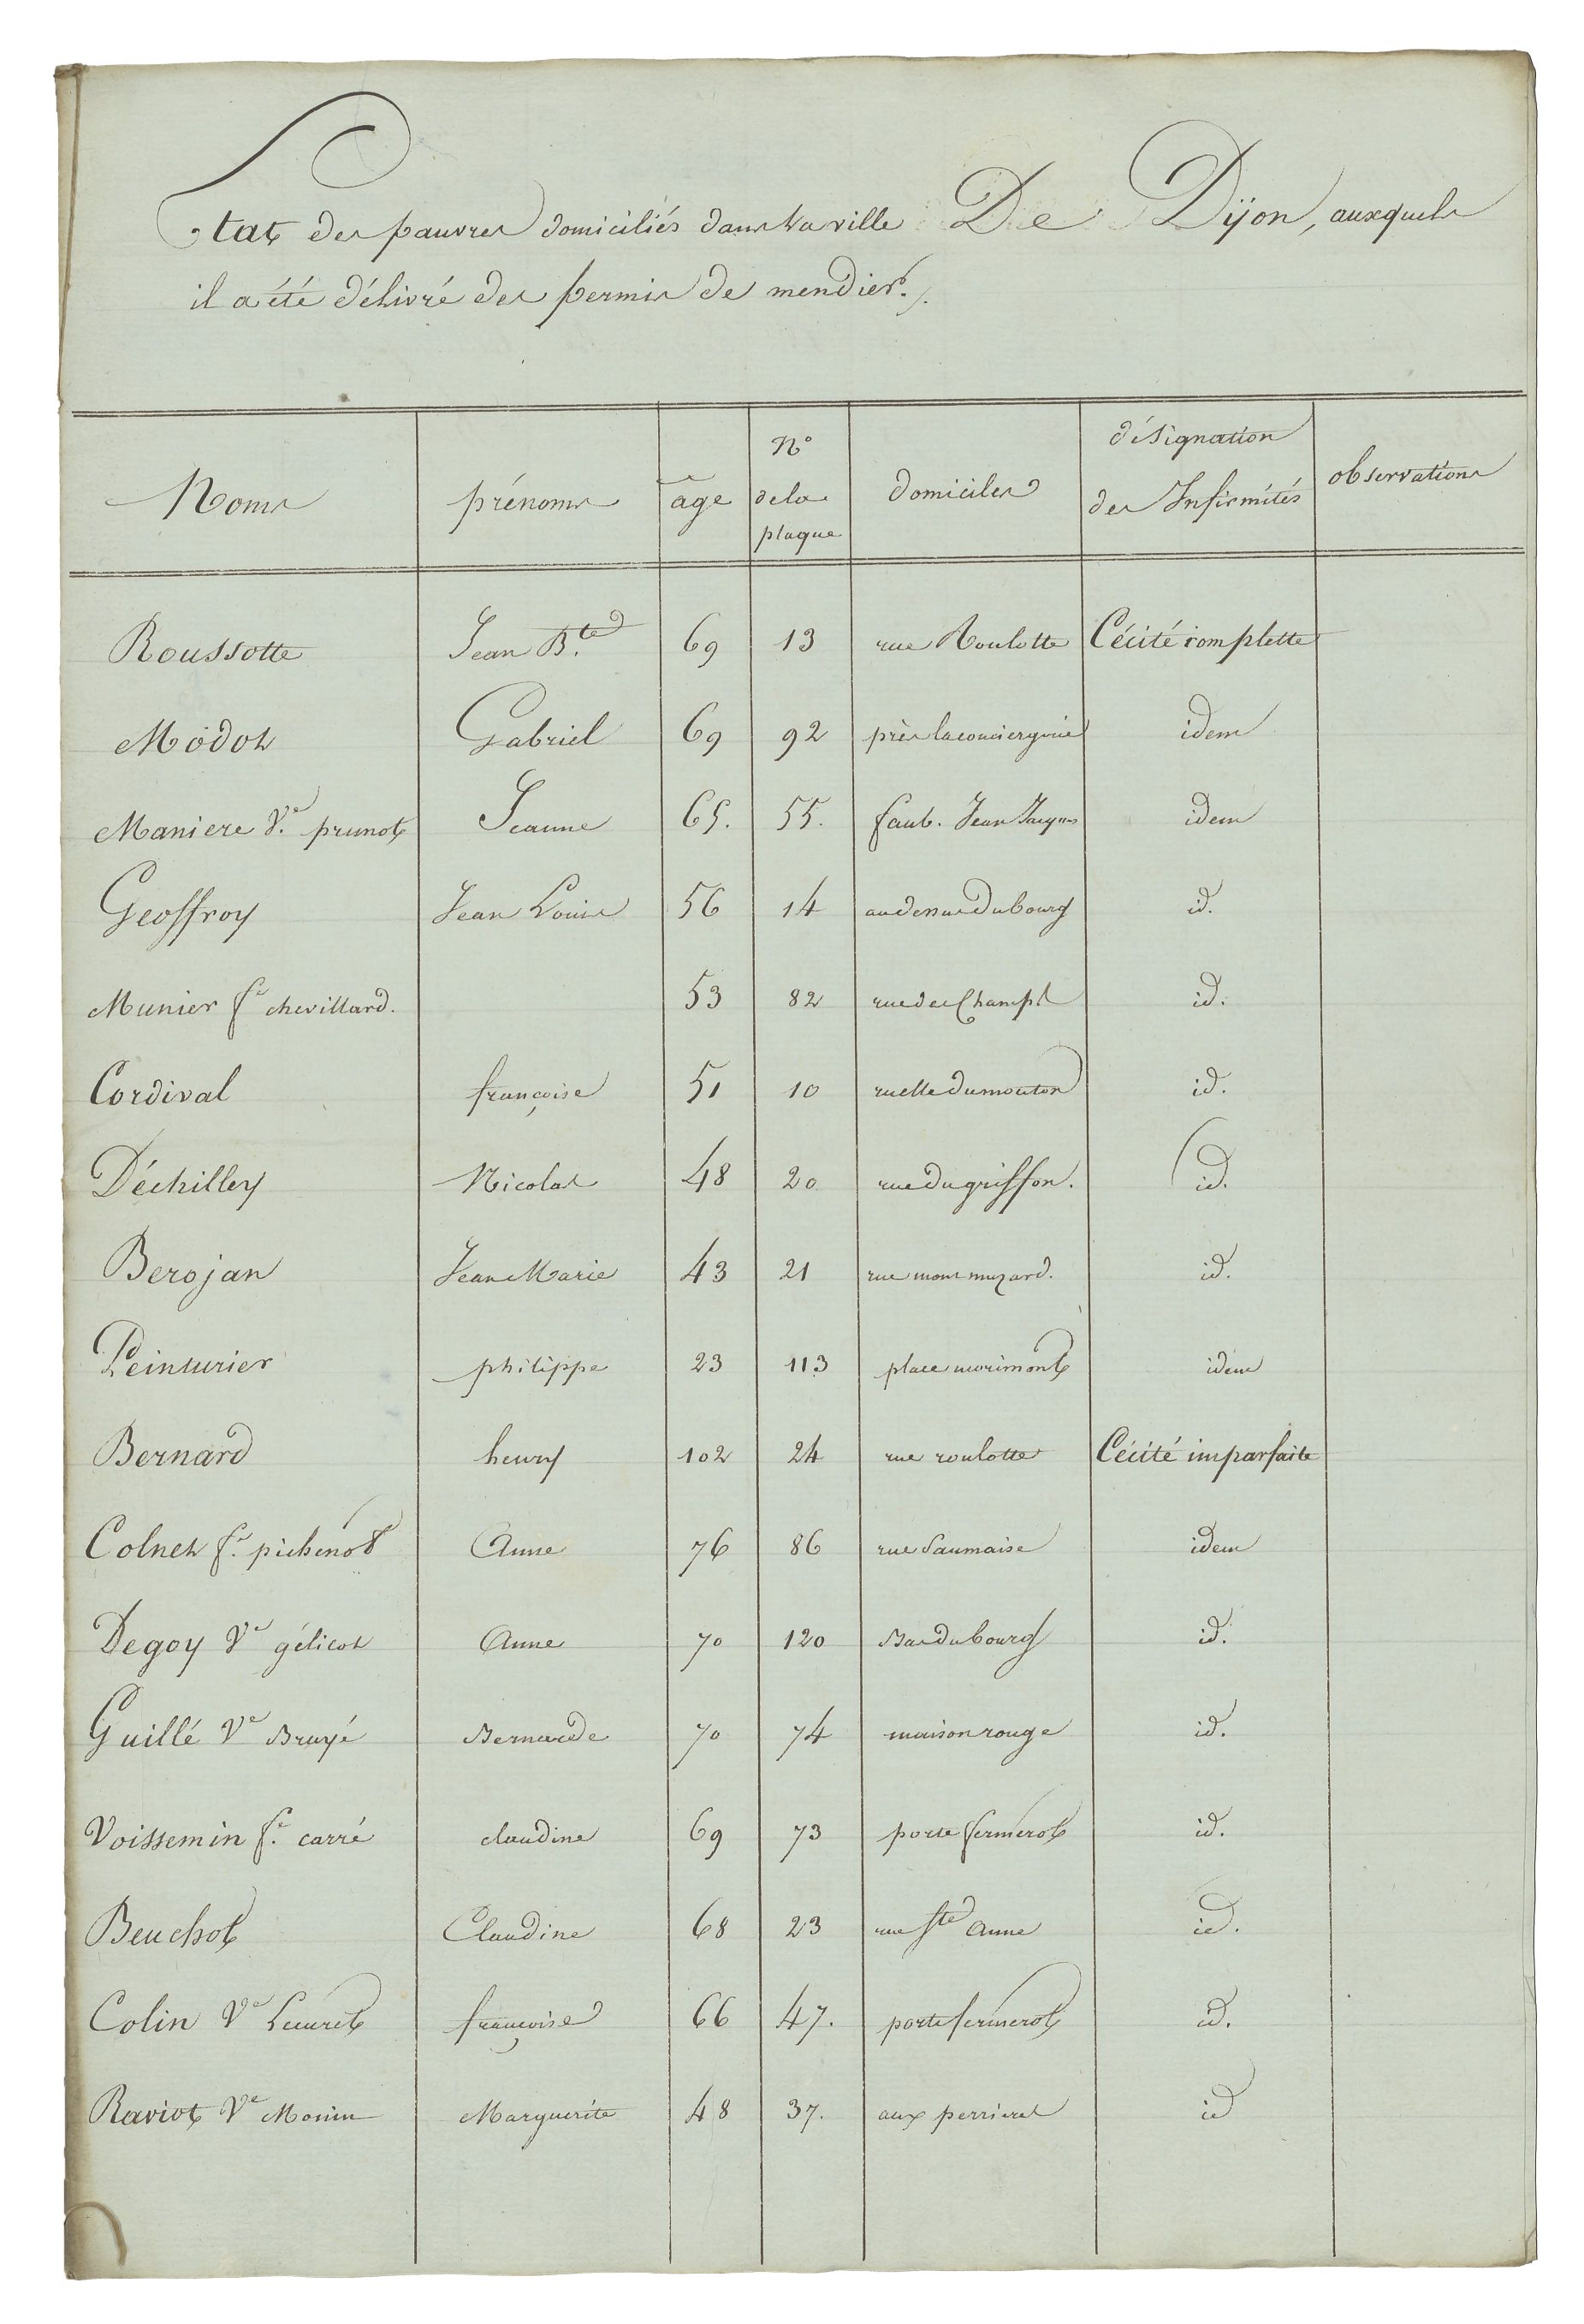 Etat des pauvres domiciliés dans la ville De Dijon, auxquels
il a été délivré des permis de mendier.
Noms prénoms âge N° de la plaque domiciles désignation des Infirmités observations
Roussotte Jean B.te 69 13 rue Roulotte Cécité complette
Modot Gabriel 69 92 près la conciergerie idem
Maniere V.e prunot Jeanne 65. 55. faub. Jean Jacques idem
Geoffroy Jean Louis 56 14 au dessus du bourg id.
Munier f.e chevillard. 53 82 rue des Champs id.
Cordival françoise 51 10 ruelle du mouton id.
Déchilley Nicolas 48 20 rue du griffon. id.
Berojan Jean Marie 43 21 rue mont muzard. id.
Peinturier philippe 23 113 place morimont idem
Bernard henry 102 24 rue roulotte Cécité imparfaite
Colnet f.e pichenot Anne 76 86 rue Saumaise idem
Degoy V.e gélicot Anne 70 120 Bas du bourg id.
Guillé V.e Bruyé Bernarde 70 74 maison rouge id.
Voissemin f.e carré claudine 69 73 porte fermerot id.
Beuchot Claudine 68 23 rue Ste Anne id.
Colin V.e françoise 66 47. porte fermerot id.
Raviot V.e Monin Marguerite 48 37. aux perrieres id